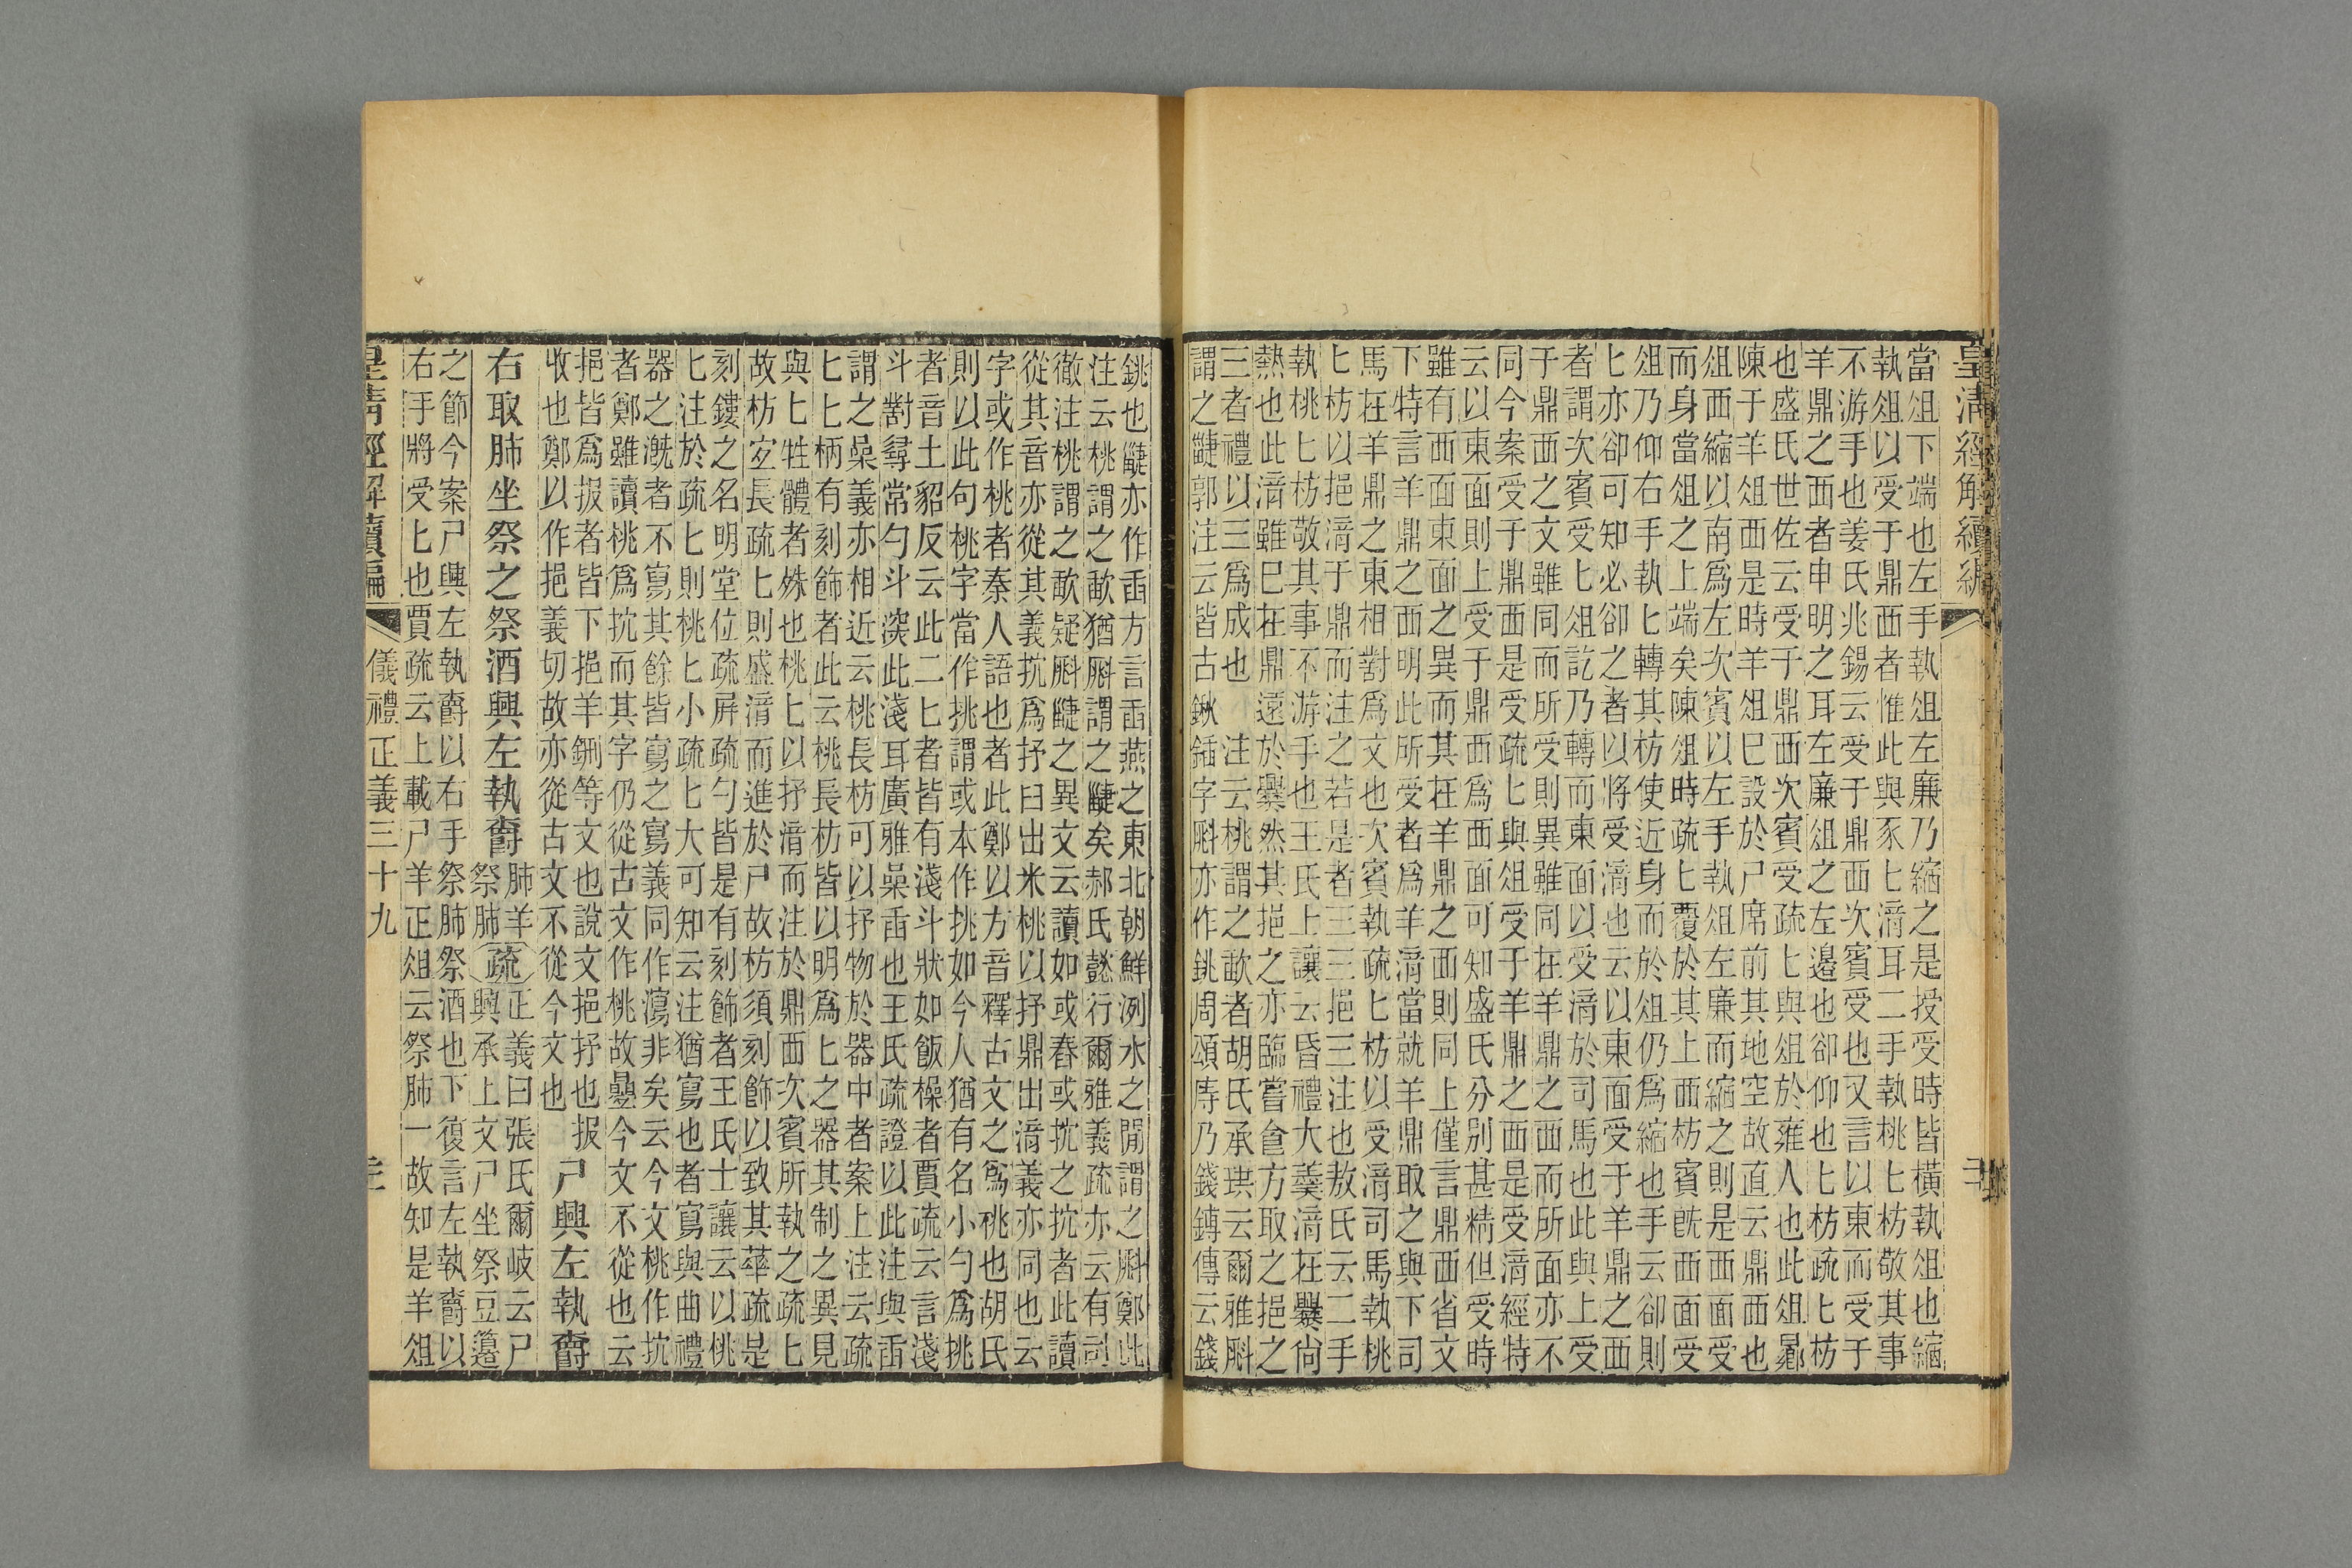 皇清經解續編
當俎下端也左手執俎左廉乃縮之是授受時皆橫執俎也縮
執俎以受于鼎西者惟此與豕匕湆耳二手執桃匕枋敬其事
不游手也姜氏兆錫云受于鼎西次賓受也又言以東而受于
羊鼎之西者申明之耳左廉俎之左邉也卻仰也匕枋疏匕枋
也盛氏世佐云受于鼎西次賓受疏匕與俎於雍人也此俎曏
陳于羊俎西是時羊俎巳設於尸席前其地空故直云鼎西也
俎西縮以南爲左次賓以左手執俎左廉而縮之則是西面受
而身當俎之上端矣陳俎時疏匕覆於其上西枋賓旣西面受
俎乃仰右手執匕轉其枋使近身而於俎仍爲縮也手云卻則
匕亦卻可知必卻之者以將受湆也云以東面受于羊鼎之西
者謂次賓受匕俎訖乃轉而東面以受湆於司馬也此與上受
于鼎西之文雖同而所受則異雖同在羊鼎之西而所面亦不
同今案受于鼎西是受疏匕與俎受于羊鼎之西是受湆經特
云以東面則上受于鼎西爲西面可知盛氏分別甚精但受時
雖有西面東面之異而其在羊鼎之西則同上僅言鼎西省文
下特言羊鼎之西明此所受者爲羊湆當就羊鼎取之與下司
馬在羊鼎之東相對爲文也次賓執疏匕枋以受湆司馬執桃
匕枋以挹湆于鼎而注之若是者三三挹三注也敖氏云二手
執桃匕枋敬其事不游手也王氏上讓云昏禮大羹湆在爨尙
熱也此湆雖巳在鼎遠於爨然其挹之亦臨嘗㑹方取之挹之
三者禮以三爲成也　注云桃謂之歃者胡氏承珙云爾雅㪺
謂之疀郭注云皆古鍬鍤字㪺亦作銚周頌庤乃錢鎛傳云錢
銚也疀亦作臿方言臿燕之東北朝鮮洌水之閒謂之㪺鄭此
注云桃謂之歃猶㪺謂之疀矣郝氏懿行爾雅義疏亦云有司
徹注桃謂之歃疑㪺疀之異文云讀如或舂或抗之抗者此讀
從其音亦從其義抗爲抒臼出米桃以抒鼎出湆義亦同也云
字或作桃者秦人語也者此鄭以方音釋古文之爲桃也胡氏
則以此句桃字當作挑謂或本作挑如今人猶有名小勺爲挑
者音土貂反云此二匕者皆有淺斗狀如飯橾者賈疏云言淺
斗對尋常勺斗深此淺耳廣雅喿臿也王氏疏證以此注與臿
謂之喿義亦相近云桃長枋可以抒物於器中者案上注云疏
匕匕柄有刻飾者此云桃長枋皆以明爲匕之器其制之異見
與匕牲體者殊也桃匕以抒湆而注於鼎西次賓所執之疏匕
故枋宐長疏匕則盛湆而進於尸故枋須刻飾以致其華疏是
刻鏤之名明堂位疏屛疏勺皆是有刻飾者王氏士讓云以桃
匕注於疏匕則桃匕小疏匕大可知云注猶寫也者寫與曲禮
器之漑者不寫其餘皆寫之寫義同作瀉非矣云今文桃作抗
者鄭雖讀桃爲抗而其字仍從古文作桃故疊今文不從也云
挹皆爲扱者皆下挹羊鉶等文也說文挹抒也扱
收也鄭以作挹義切故亦從古文不從今文也　尸興左執爵
右取肺坐祭之祭酒興左執爵肺羊祭肺疏正義曰張氏爾岐云尸
興承上文尸坐祭豆籩
之節今案尸興左執爵以右手祭肺祭酒也下復言左執爵以
右手將受匕也賈疏云上載尸羊正俎云祭肺一故知是羊俎
皇清經解續編　儀禮正義三十九